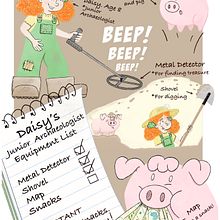 Daisy, Age 8
Junior
Archaeologist
and pig
BEEP!
BEEP!
BEEP!
Metal Detector
*For finding treasure
Shovel
*For digging
Daisy's
Junior Archaeologist
Equipment List
Metal Detector
Shovel
Map
Snacks
TANT
Snacks
Map